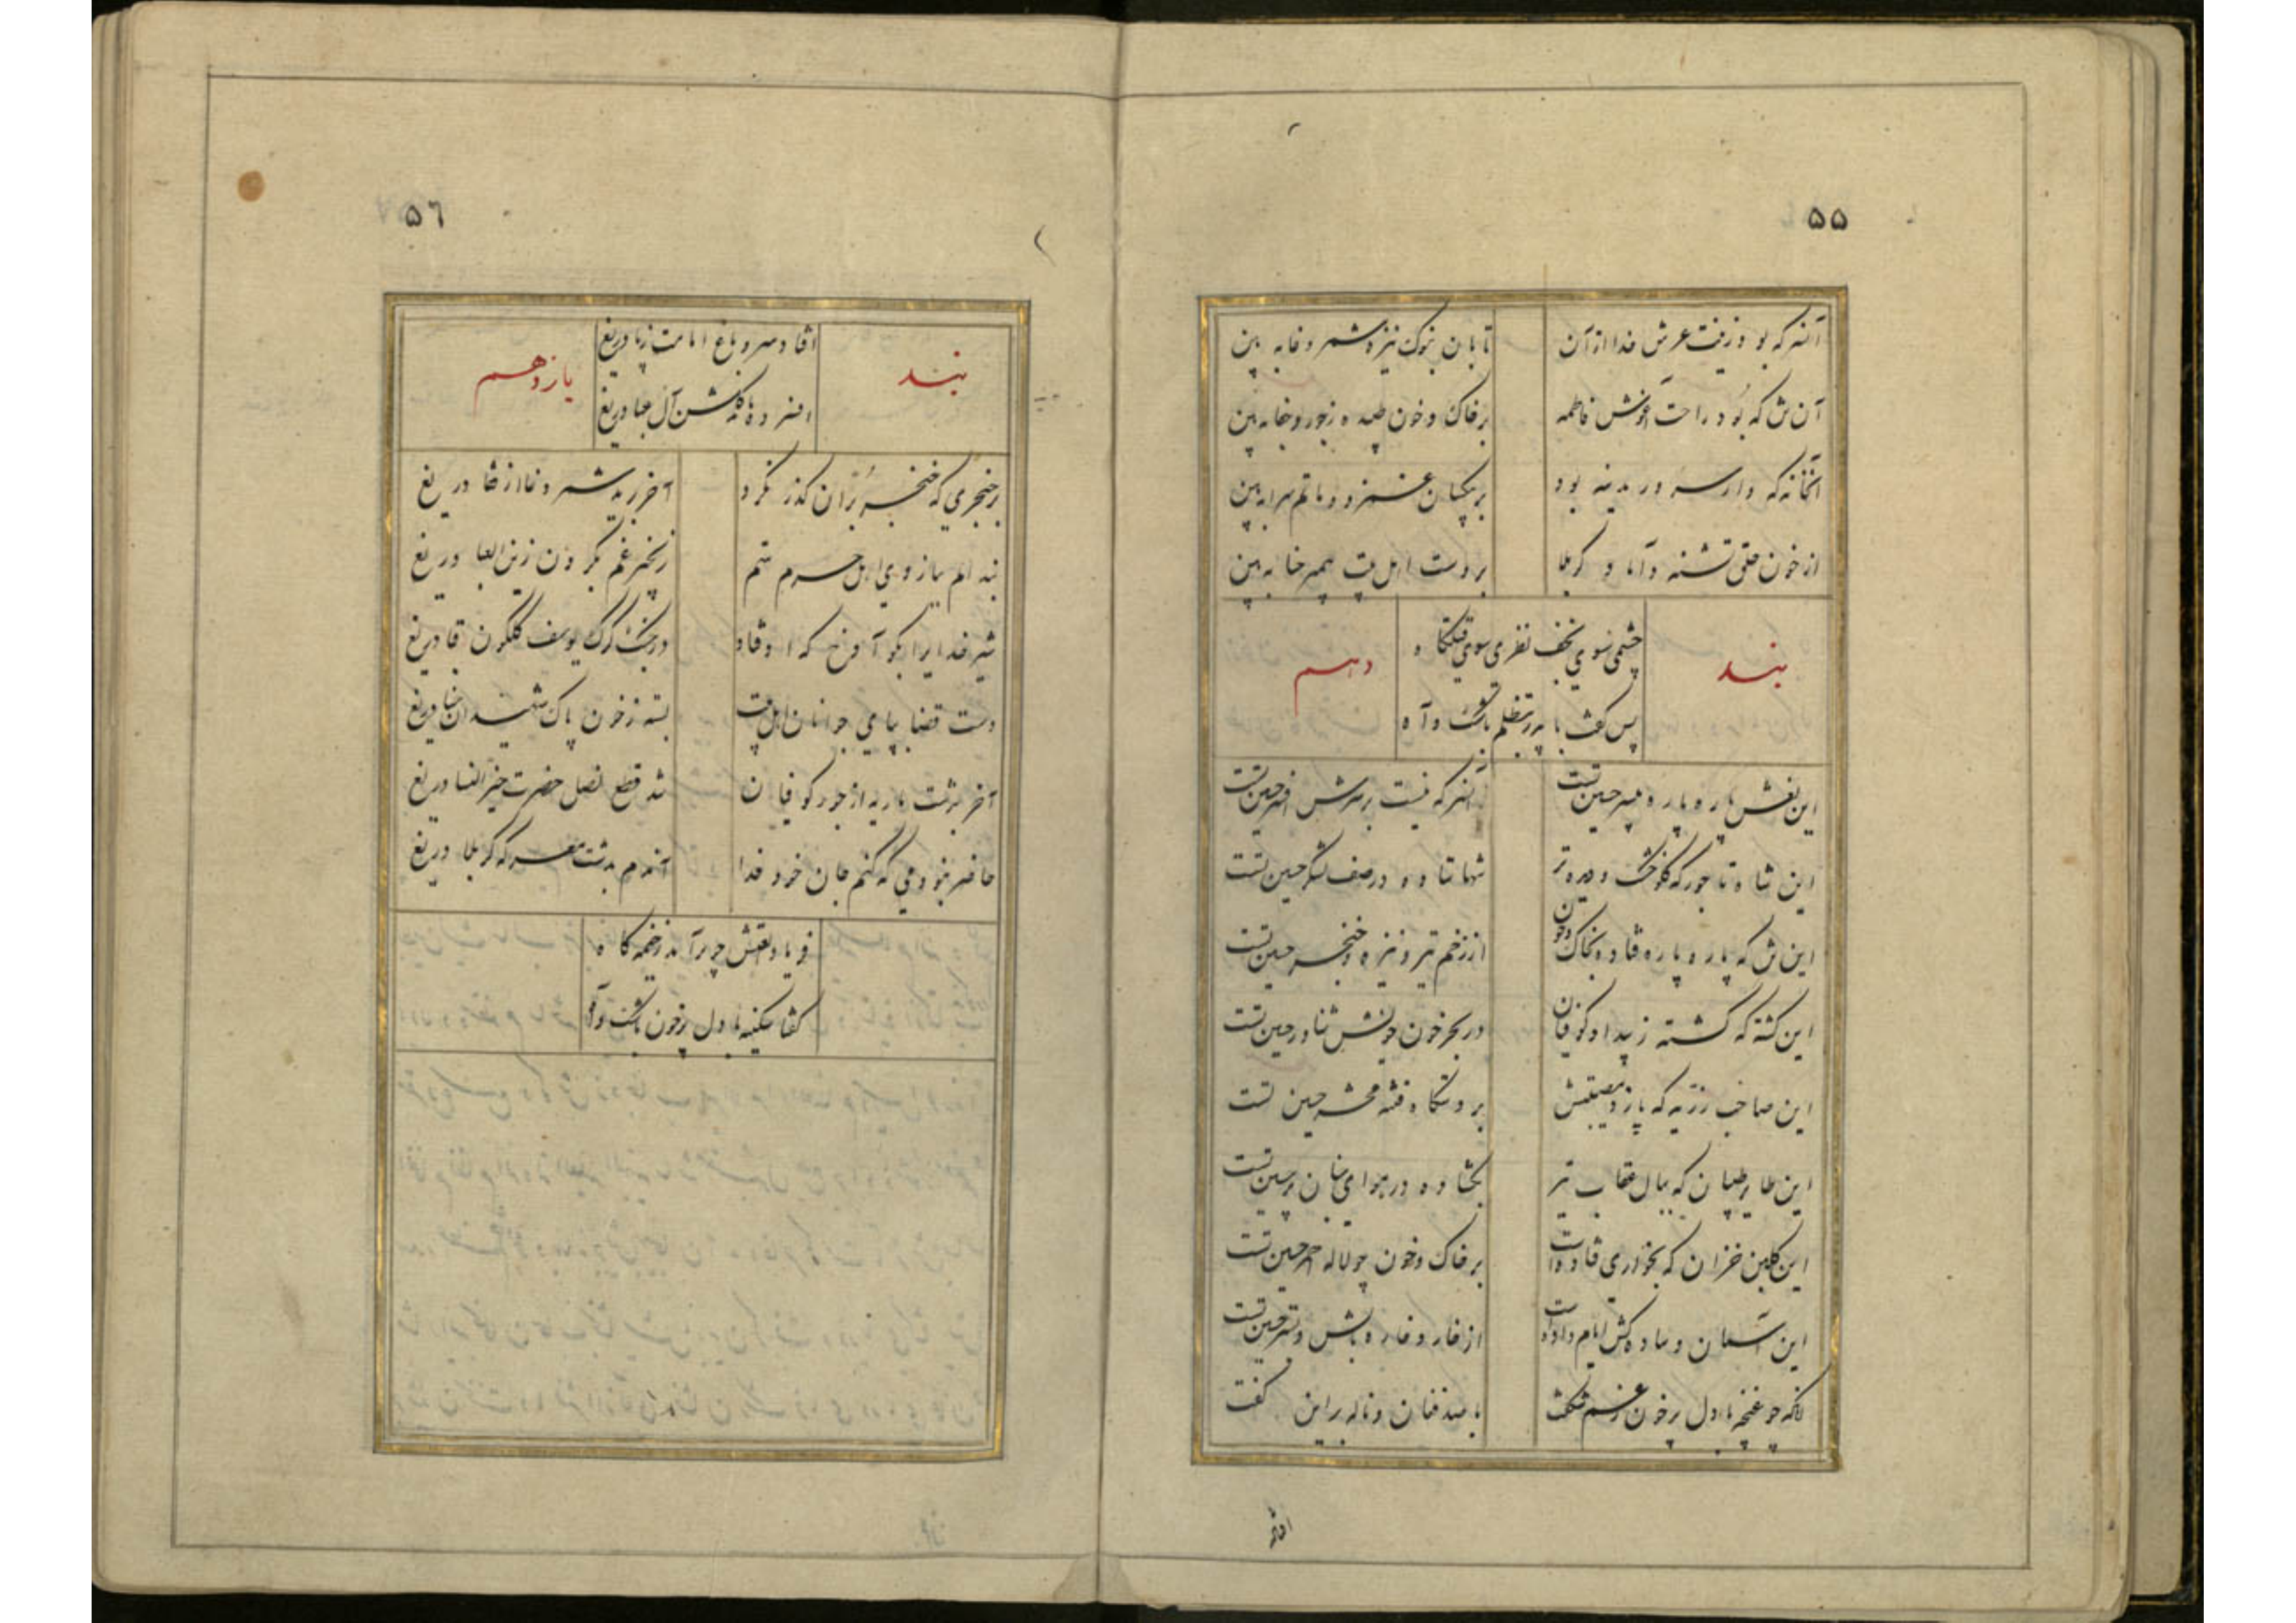 ۵۵
آنسر که بود زینت عرش خدا از آن
تابان بنوک نیزه شمر دغا به بین
آن تن که بود راحت آغوش فاطمه
بر خاک و خون طپیده ز جور و جفا به بین
آنخانه که در مدینه بود
بر بیکسان غمزده ماتم سرا به بین
از خون حلق تشنه داماد کربلا
بر دست اهل بیت پیمبر حنا به بین
بند
چشمی بسوی نجف نظری سوی قتلگاه
دهم
پس گفت با پدر بتظلم باشک و آه
این نعش پاره پاره بی سر حسین تست
آنسر که نیست بر سرش افسر حسین تست
این شاه تاجور که گلو خشک و دیده تر
تنها ستاده در صف لشکر حسین تست
این تن که پاره پاره فتاده بخاک و خون
از زخم تیر و نیزه و خنجر حسین تست
این کشته که گشته ز بیداد کوفیان
در بحر خون خویش شناور حسین تست
این صاحب رزیه که بار مصیبتش
بر دستگاه فتنه محشر حسین تست
این طایر طپان که ببال عقاب تیر
بگشاده در هوای جنان پر حسین تست
این گلبن خزان که بخواری فتاده است
بر خاک و خون چو لاله احمر حسین تست
این آسمان وساده کش ایام داده است
از خار و خاره بالش و بستر حسین تست
آنگه چو غنچه با دل پر خون ز غم شکفت
با صد فغان و ناله بر این گفت
۵٦
بند
افتاد سرو باغ امامت ز پا دریغ
یازدهم
افسرده گلشن آل عبا دریغ
بر حنجری که خنجر بران گذر نکرد
آخر برید شمر دغا از قفا دریغ
بند الم ببازوی اهل حرم ستم
زنجیر غم بگردن زین العبا دریغ
شیر خدایرا بگو آخر که اوفتاد
در چنگ گرگ یوسف گلگون قبا دریغ
دست قضا بپای جوانان اهل بیت
بسته ز خون پاک شهیدان حنا دریغ
آخر بدشت ماریه از جور کوفیان
شد قطع نصل حضرت خیر النسا دریغ
حاضر نبودمی که کنم جان خود فدا
آندم بدشت معرکه کربلا دریغ
فریاد نعتش چو برآمد ز خیمه گاه
گفتا سکینه با دل پر خون باشک و آه